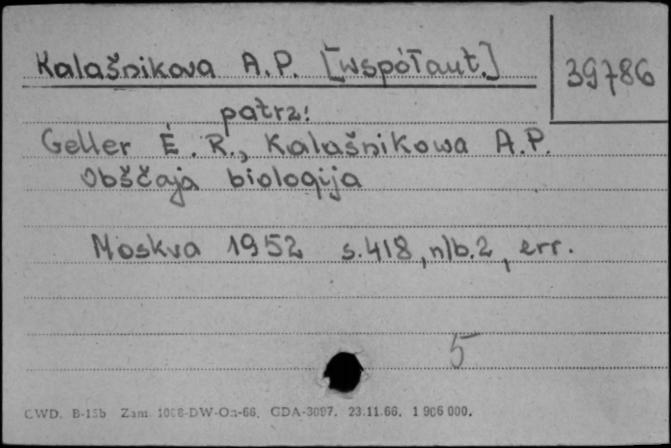 Kalašnikova A.P. [współaut.]
39786
patrz:
Geller É. R., Kalašnikowa A.P.
Obščaja biologija
Moskva 1952 s. 418, nlb. 2, err.
5
CWD. B-15b Zam. 1068-DW-Oa-66. GDA-3097. 23.11.66. 1 906 000.